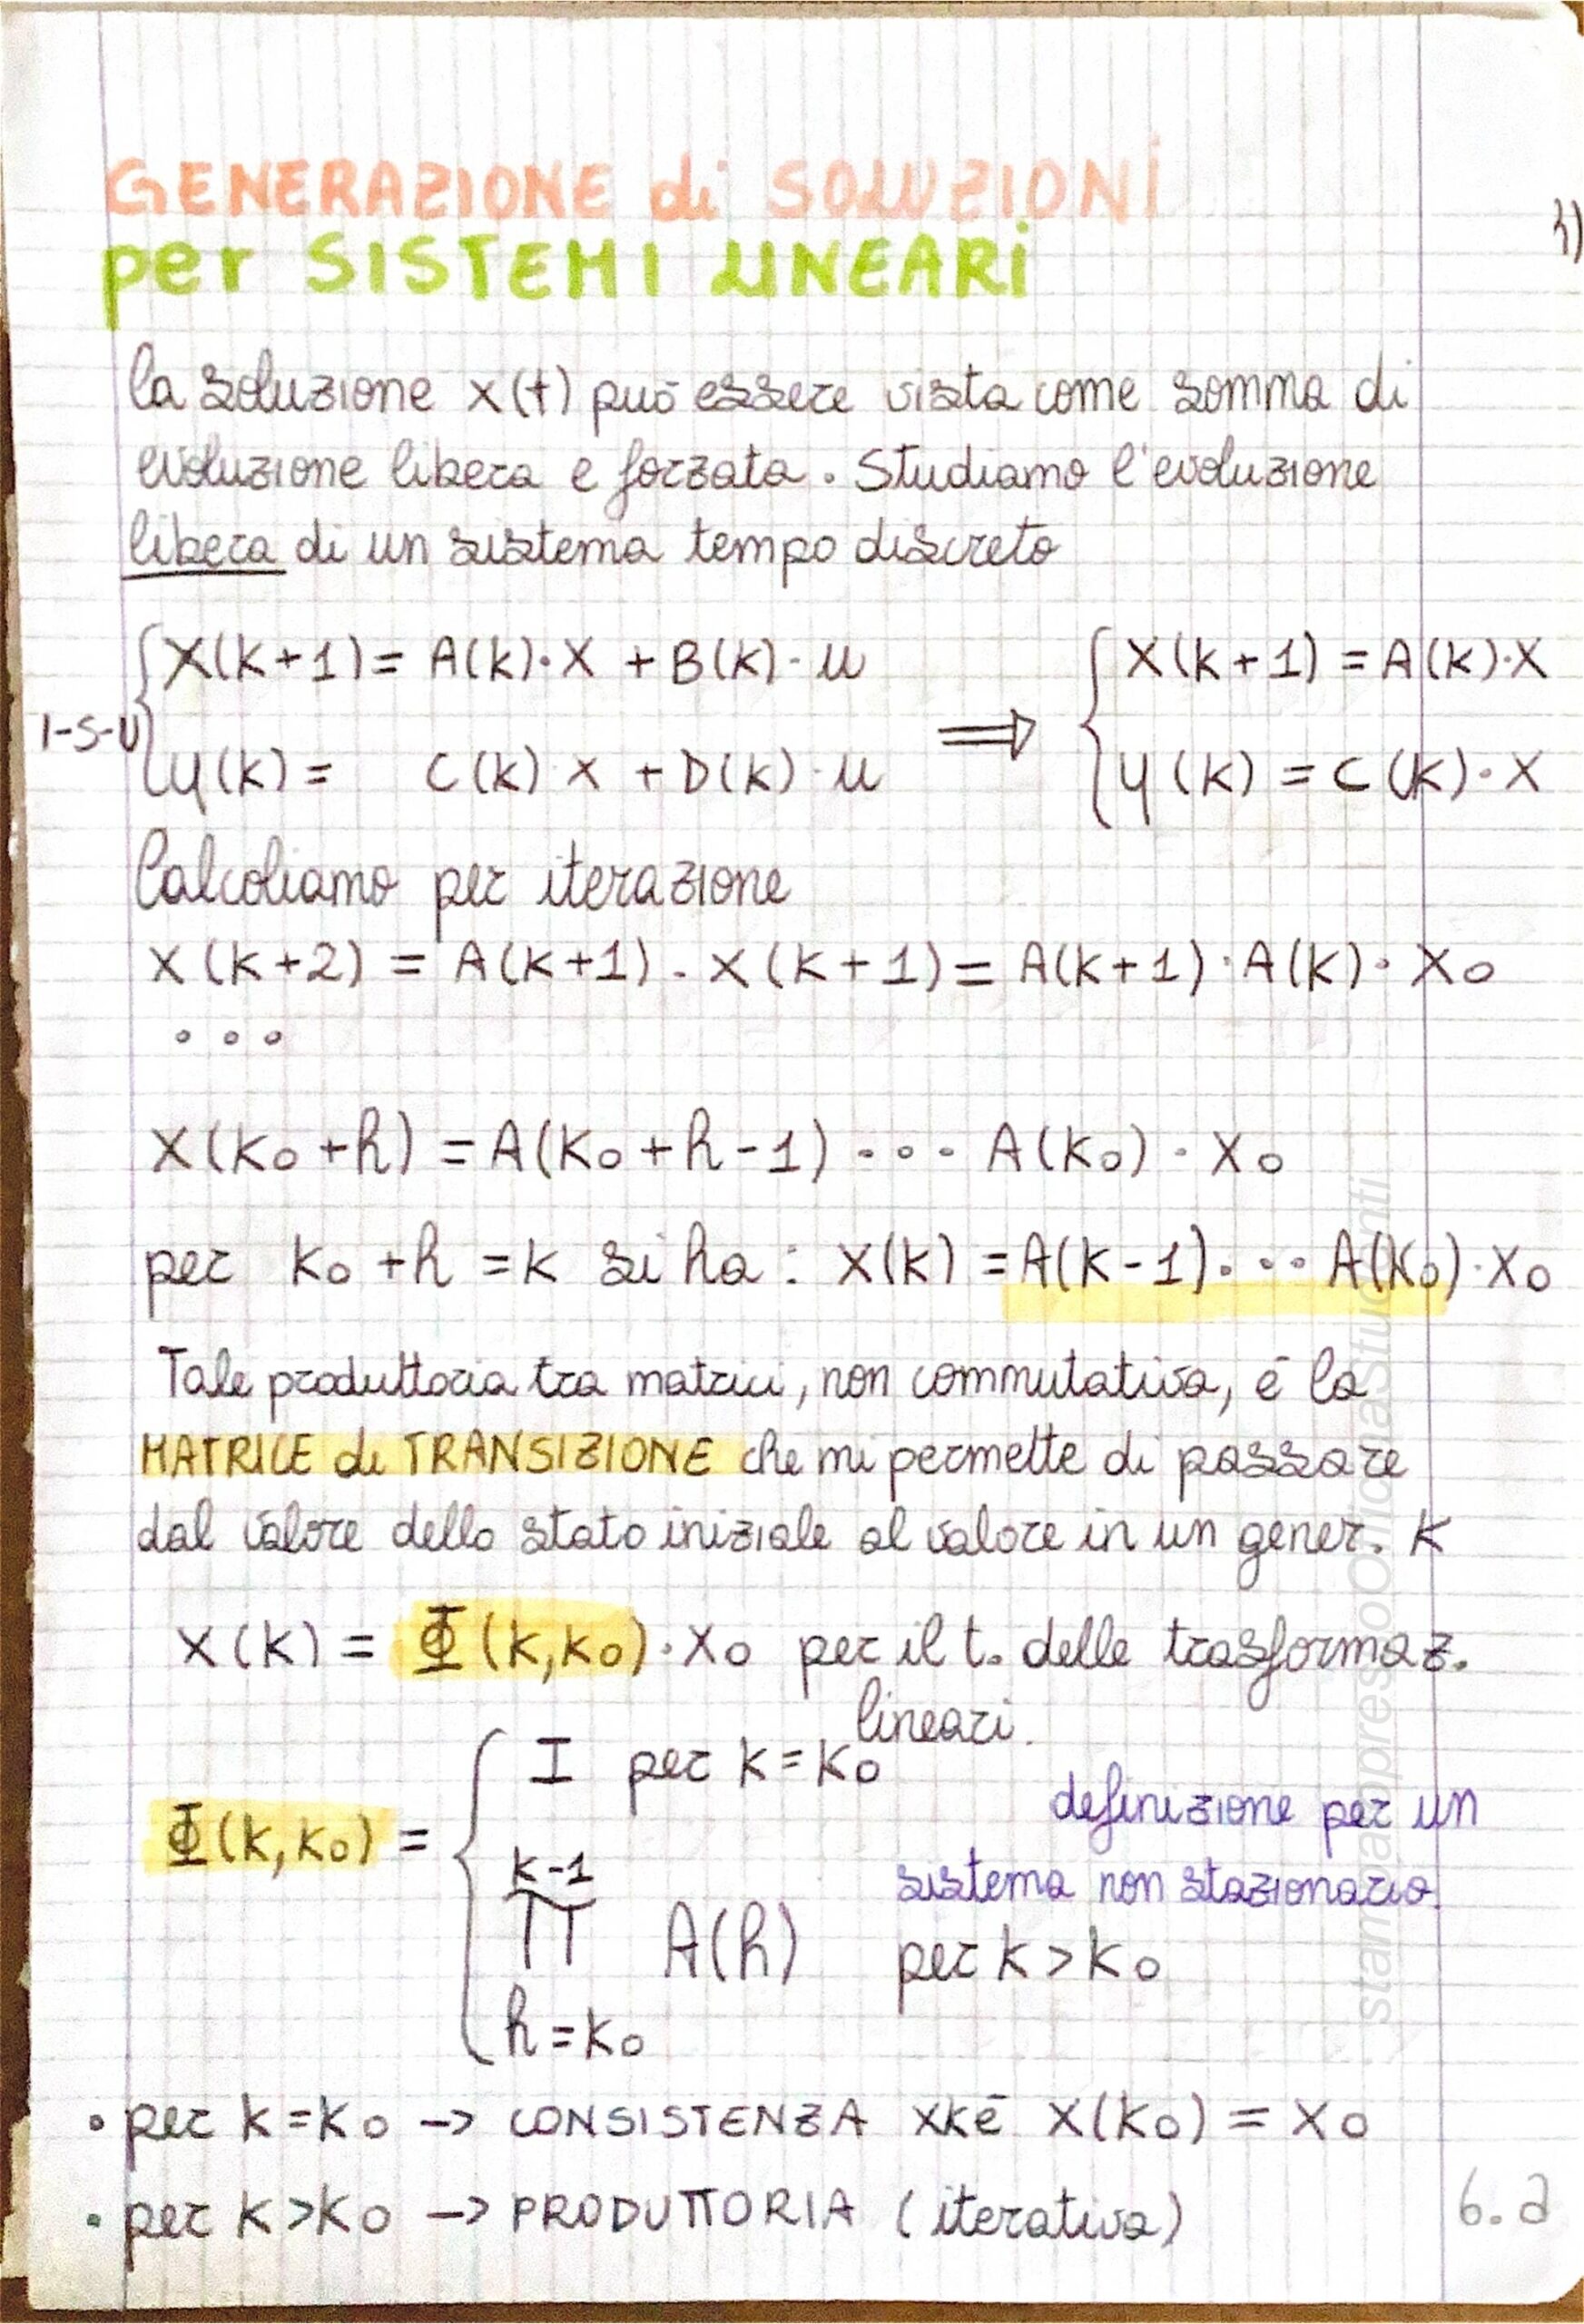 GENERAZIONE di SOLUZIONI
per SISTEMI LINEARI
la soluzione x(t) può essere vista come somma di
evoluzione libera e forzata. Studiamo l'evoluzione
libera di un sistema tempo discreto
X(k+1) = A(k)·X + B(k)·u ⟹ X(k+1) = A(k)·X
I-S-U
y(k) = C(k) x + D(k)·u y(k) = C(k)·X
Calcoliamo per iterazione
X(k+2) = A(k+1)·X(k+1) = A(k+1)·A(k)·X₀
...
X(k₀+h) = A(k₀+h-1) ... A(k₀)·X₀
per k₀+h = k si ha: X(k) = A(k-1)·... A(k₀)·X₀
Tale produttoria tra matrici, non commutativa, é la
MATRICE di TRANSIZIONE che mi permette di passare
dal valore dello stato iniziale al valore in un gener. K
X(k) = Φ(k,k₀)·X₀ per il t. delle trasformaz.
lineari.
I per k=k₀
definizione per un
Φ(k,k₀) =
k-1
sistema non stazionario.
∏ A(h) per k>k₀
h=k₀
• per k=k₀ -> CONSISTENZA xké X(k₀) = X₀
• per k>k₀ -> PRODUTTORIA (iterativa)
6.a